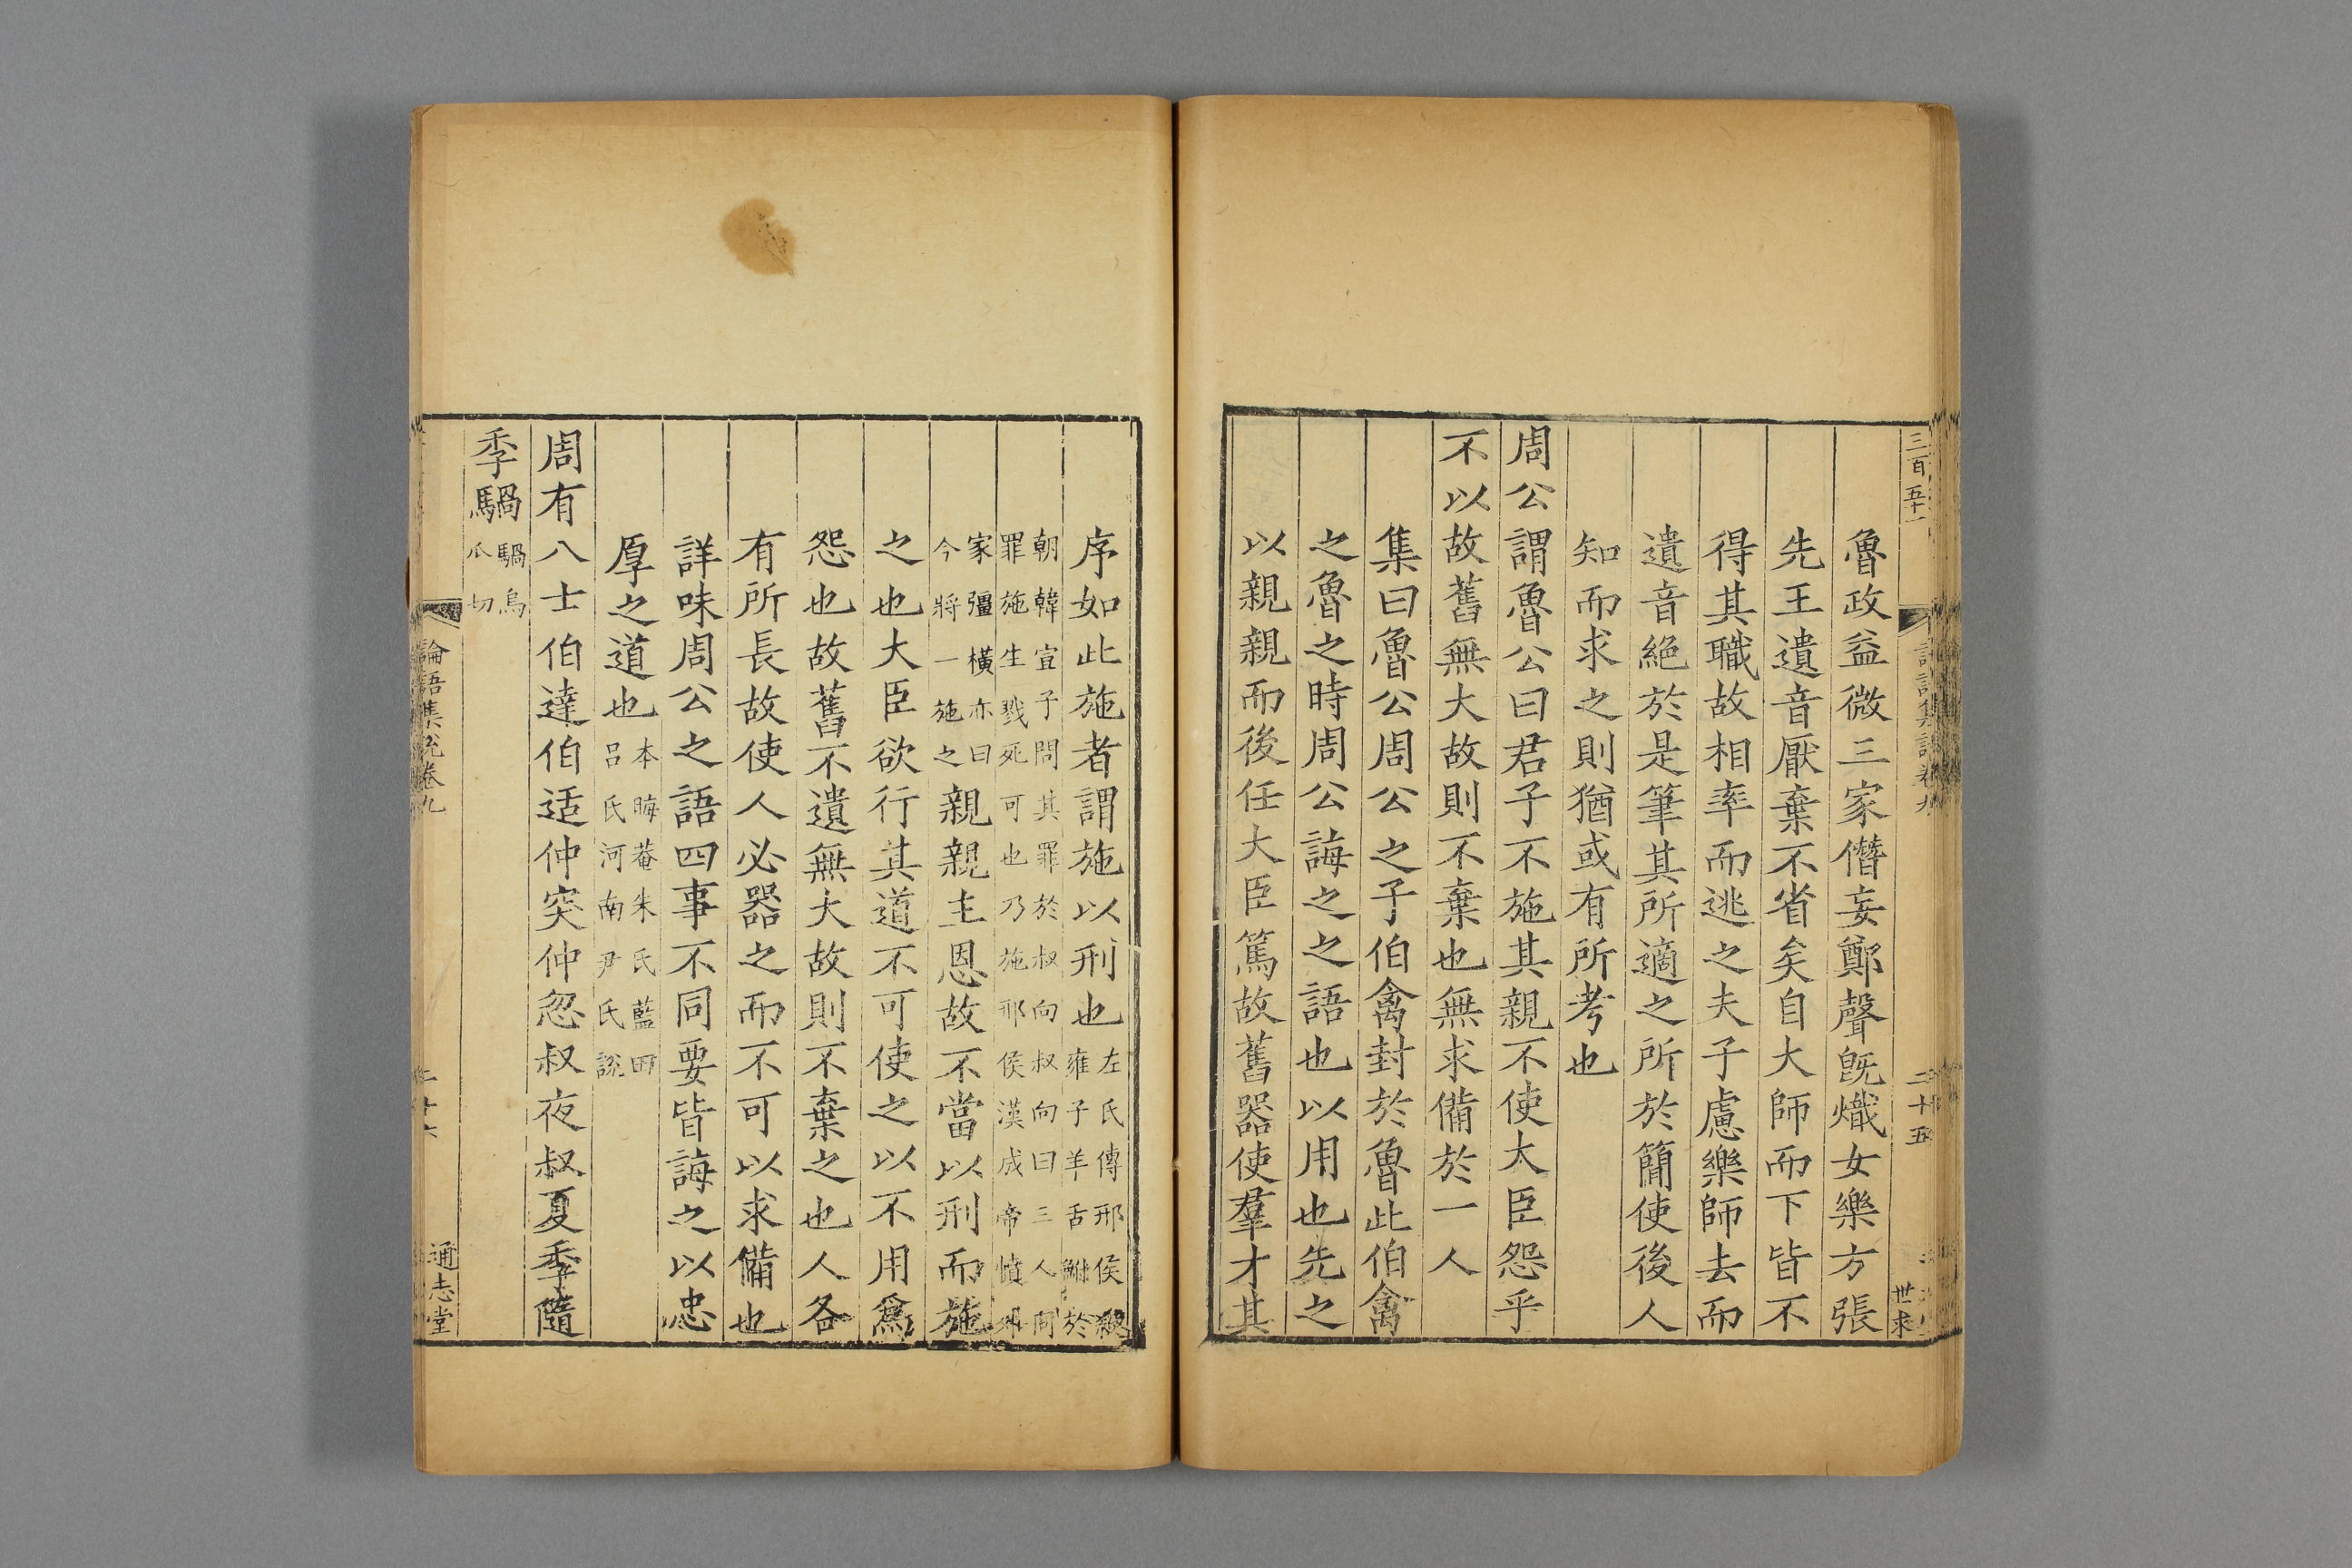 三百五十一
二十五
世求
魯政益微三家僭妄鄭聲旣熾女樂方張
先王遺音厭棄不省矣自大師而下皆不
得其職故相率而逃之夫子慮樂師去而
遺音絕於是筆其所適之所於簡使後人
知而求之則猶或有所考也
周公謂魯公曰君子不施其親不使大臣怨乎
不以故舊無大故則不棄也無求備於一人
集曰魯公周公之子伯禽封於魯此伯禽
之魯之時周公誨之之語也以用也先之
以親親而後任大臣篤故舊器使羣才其
序如此施者謂施以刑也左氏傳邢侯殺雍子羊舌鮒於
朝韓宣子問其罪於叔向叔向曰三人同罪施生戮死可也乃施邢侯漢成帝憤
家彊橫亦曰今將一施之親親主恩故不當以刑而施
之也大臣欲行其道不可使之以不用爲
怨也故舊不遺無大故則不棄之也人各
有所長故使人必器之而不可以求備也
詳味周公之語四事不同要皆誨之以忠
厚之道也本晦菴朱氏藍田呂氏河南尹氏說
周有八士伯達伯适仲突仲忽叔夜叔夏季隨
季騧騧烏瓜切
論語集說卷九
二十六
通志堂